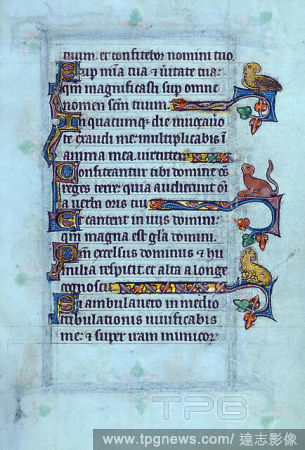 tuum. et confitebor nomini tuo.
Sup mia tua & ũitate tua:
qm magnificasti sup omne
nomen scm tuum.
In quacumq; die inuocaue
te exaudi me: multiplicabis ĩ
anima mea uirtutem
Confiteantur tibi domine om̃s
reges terre: quia audierunt oĩa
uerba oris tui
Et cantent in uiis domini:
qm magna est gl̃a domini.
Qm excelsus dominus & hu
milia respicit: et alta a longe
cognoscit
Si ambulauero in medio
tribulationis uiuificabis
me: & super iram inimicor
TPG
www.tpgnews.com/ 達志影像